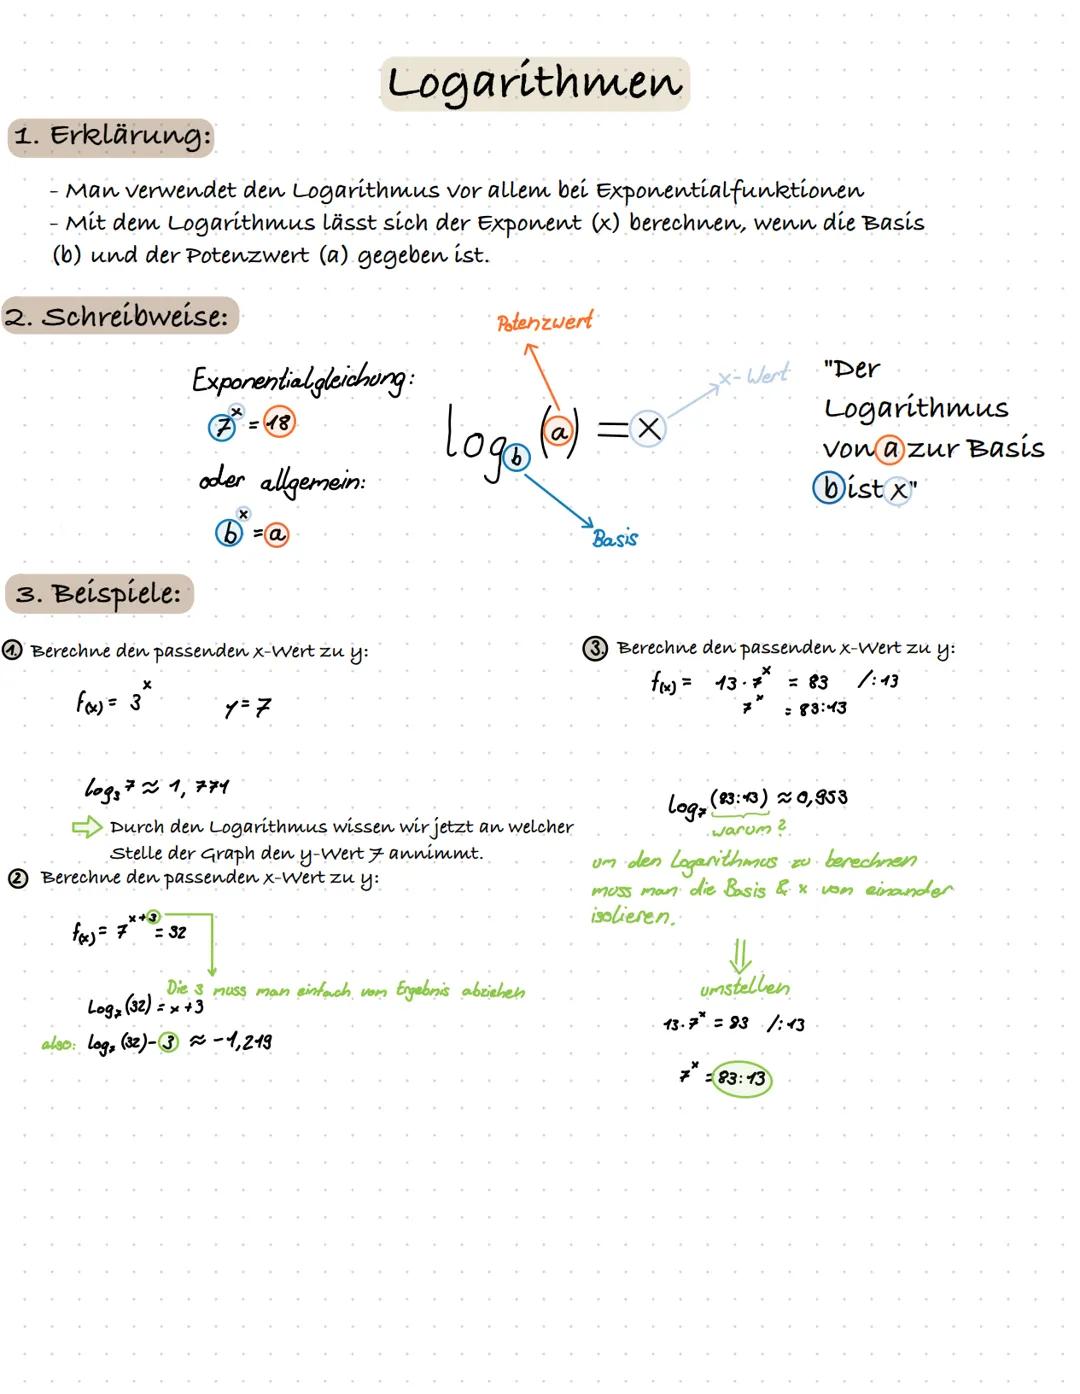 Logarithmen
1. Erklärung:
- Man verwendet den Logarithmus vor allem bei Exponentialfunktionen
- Mit dem Logarithmus lässt sich der Exponent (x) berechnen, wenn die Basis
(b) und der Potenzwert (a) gegeben ist.
2. Schreibweise:
Exponentialgleichung:
7^x = 18
oder allgemein:
b^x = a
Potenzwert
log_b (a) = x
x-Wert
Basis
"Der
Logarithmus
von a zur Basis
b ist x"
3. Beispiele:
1. Berechne den passenden x-Wert zu y:
f(x) = 3^x y = 7
log_3 7 ≈ 1,771
⇨ Durch den Logarithmus wissen wir jetzt an welcher
Stelle der Graph den y-Wert 7 annimmt.
2 Berechne den passenden x-Wert zu y:
f(x) = 7^x+3 = 32
Die 3 muss man einfach vom Ergebnis abziehen
Log_7 (32) = x+3
also: log_7 (32) - 3 ≈ -1,219
3. Berechne den passenden x-Wert zu y:
f(x) = 13 · 7^x = 83 /:13
7^x = 83:13
log_7 (83:13) ≈ 0,953
warum?
um den Logarithmus zu berechnen
muss man die Basis & x von einander
isolieren.
⇓
umstellen
13 · 7^x = 83 /:13
7^x = 83:13